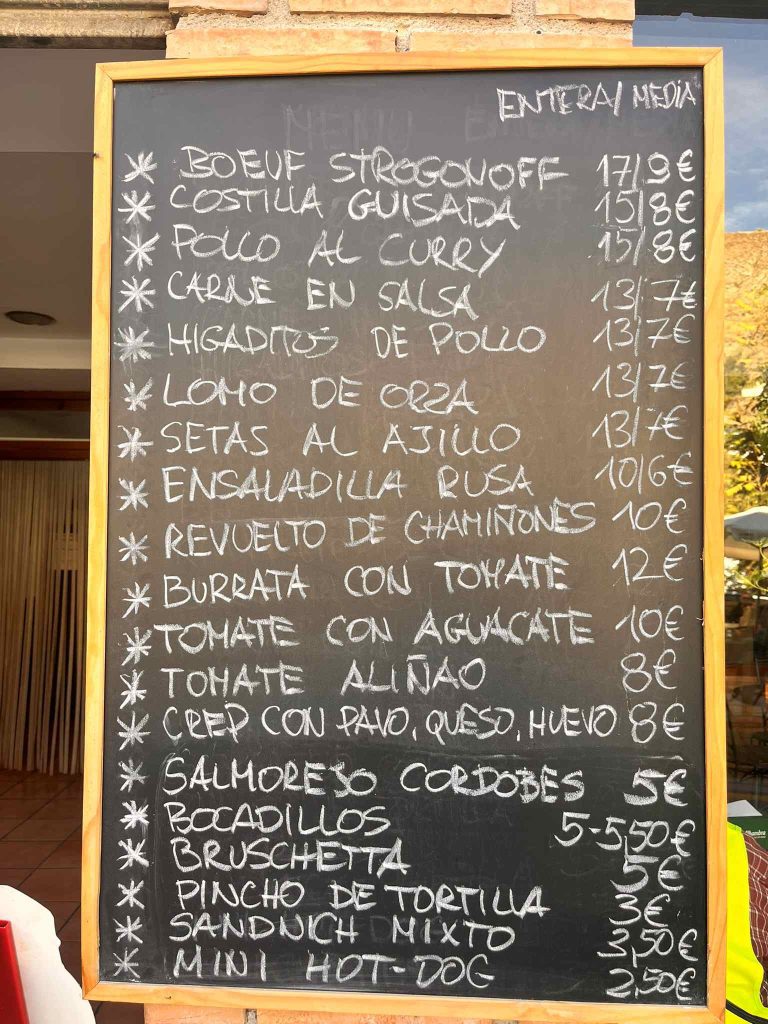 ENTERA/ MEDIA
* BOEUF STROGONOFF 17/9€
* COSTILLA GUISADA 15/8€
* POLLO AL CURRY 15/8€
* CARNE EN SALSA 13/7€
* HIGADITOS DE POLLO 13/7€
* LOMO DE ORZA 13/7€
* SETAS AL AJILLO 13/7€
* ENSALADILLA RUSA 10/6€
* REVUELTO DE CHAMIÑONES 10€
* BURRATA CON TOMATE 12€
* TOMATE CON AGUACATE 10€
* TOMATE ALIÑAO 8€
* CREP CON PAVO, QUESO, HUEVO 8€
* SALMOREJO CORDOBES 5€
* BOCADILLOS 5-5,50€
* BRUSCHETTA 5€
* PINCHO DE TORTILLA 3€
* SANDNICH MIXTO 3,50€
* MINI HOT-DOG 2,50€